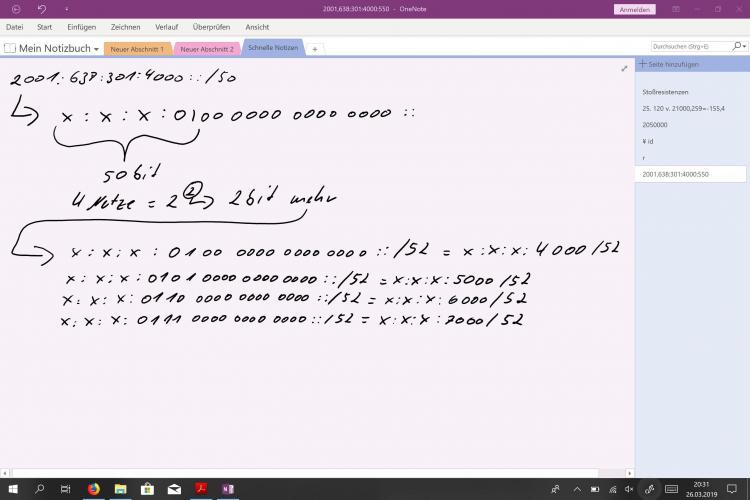 2001,638:301:4000:550 - OneNote
Anmelden
Datei Start Einfügen Zeichnen Verlauf Überprüfen Ansicht
Mein Notizbuch
Neuer Abschnitt 1
Neuer Abschnitt 2
Schnelle Notizen
+
Durchsuchen (Strg+E)
Seite hinzufügen
Stoßresistenzen
25. 120 v. 21000,259=-155,4
2050000
¥ id
r
2001,638:301:4000:550
2001:638:301:4000::/50
x : x : x : 0100 0000 0000 0000 ::
50 bit
4 Netze = 2² → 2 bit mehr
x : x : x : 0100 0000 0000 0000 ::/52 = x:x:x:4000/52
x : x : x : 0101 0000 0000 0000 ::/52 = x:x:x:5000/52
x : x : x : 0110 0000 0000 0000 ::/52 = x:x:x:6000/52
x : x : x : 0111 0000 0000 0000 ::/52 = x:x:x:7000/52
20:31
26.03.2019